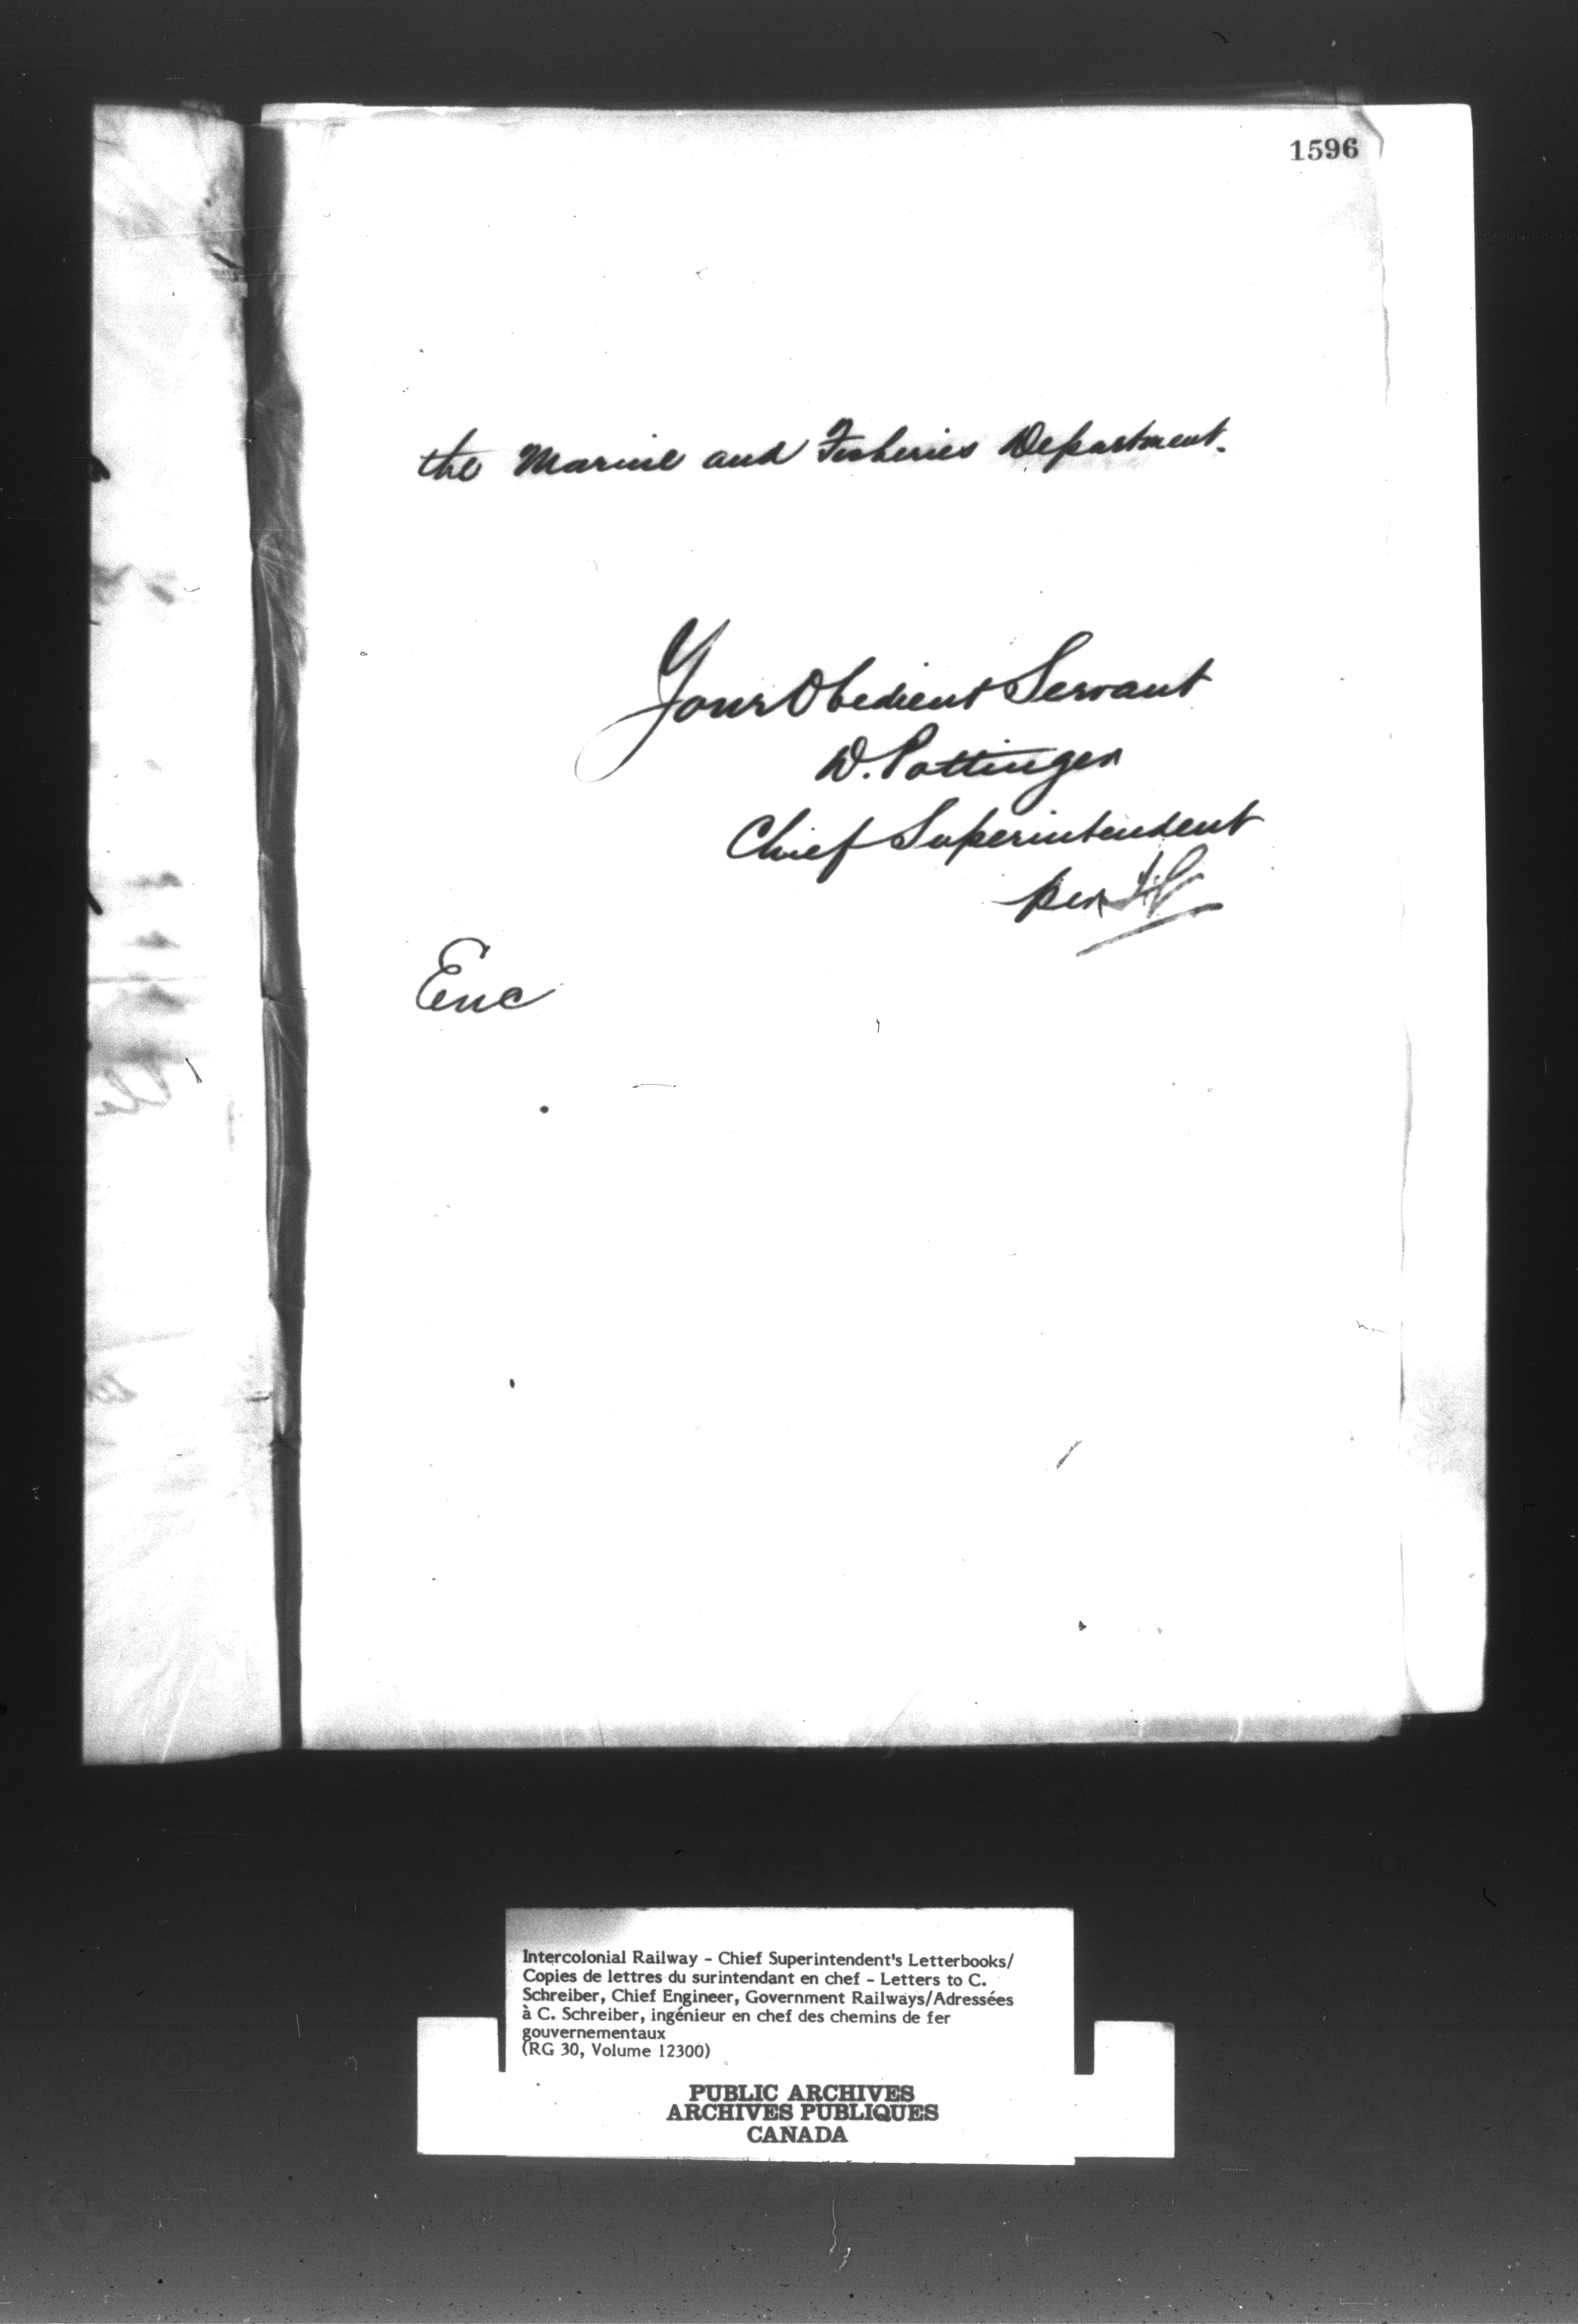 1596
the Marine and Fisheries Department.
Your Obedient Servant
D. Pottinger
Chief Superintendent
per
Enc
Intercolonial Railway - Chief Superintendent's Letterbooks/
Copies de lettres du surintendant en chef - Letters to C.
Schreiber, Chief Engineer, Government Railways/Adressées
à C. Schreiber, ingénieur en chef des chemins de fer
gouvernementaux
(RG 30, Volume 12300)
PUBLIC ARCHIVES
ARCHIVES PUBLIQUES
CANADA